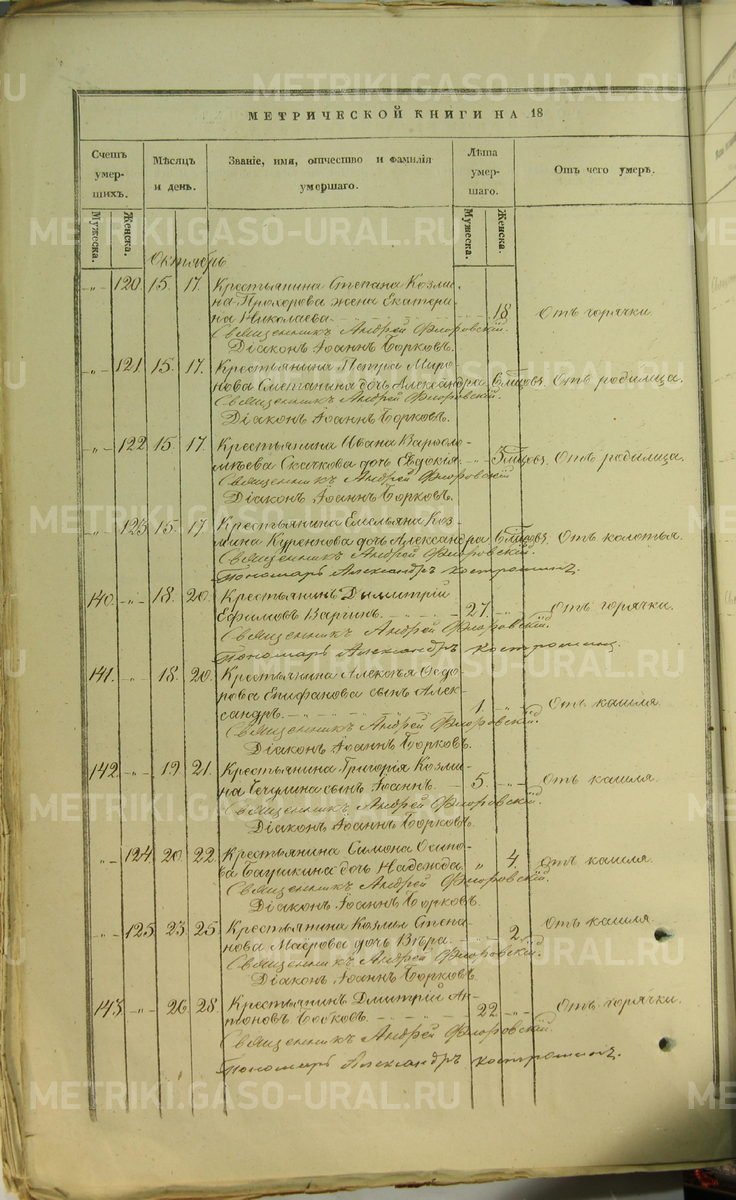 МЕТРИЧЕСКОЙ КНИГИ НА 18
Счетъ умершихъ. Мѣсяцъ и день. Званіе, имя, отчество и фамилія умершаго. Лѣта умершаго. Отъ чего умеръ.
Мужеска. Женска. Мужеска. Женска.
Октябрь
-„- 120. 15. 17. Крестьянина Степана Козми-
на Прохорова жена Екатери-
на Николаева 18 Отъ горячки.
Священникъ Андрей Флоровскій.
Діаконъ Іоаннъ Борковъ.
-„- 121. 15. 17. Крестьянина Петра Миро-
нова Сметанина дочь Александра 6 Отъ родимца.
Священникъ Андрей Флоровскій.
Діаконъ Іоаннъ Борковъ.
-„- 122. 15. 17. Крестьянина Ивана Варѳоло-
мѣева Скачкова дочь Евдокія. 3 Отъ родимца.
Священникъ Андрей Флоровскій
Діаконъ Іоаннъ Борковъ.
-„- 123. 15. 17. Крестьянина Емельяна Коз-
мина Куреннова дочь Александра 6 Отъ колотья.
Священникъ Андрей Флоровскій.
Пономарь Александръ Костромин.
140. -„- 18. 20. Крестьянинъ Димитрій
Ефимовъ Варгинъ. 27. Отъ горячки.
Священникъ Андрей Флоровскій.
Пономарь Александръ Костромин.
141. „ 18. 20. Крестьянина Алексѣя Ѳедо-
рова Епифанова сынъ Алек-
сандръ. 1 Отъ кашля
Священникъ Андрей Флоровскій.
Діаконъ Іоаннъ Борковъ.
142. -„- 19. 21. Крестьянина Григорія Козми-
на Чечулина сынъ Іоаннъ. 5. Отъ кашля.
Священникъ Андрей Флоровскій.
Діаконъ Іоаннъ Борковъ.
-„- 124. 20. 22. Крестьянина Симона Осипо-
ва дочь Надежда „ 4. Отъ кашля.
Священникъ Андрей Флоровскій.
Діаконъ Іоаннъ Борковъ.
-„- 125. 23. 25. Крестьянина Козмы Степа-
нова дочь Вѣра. 2. Отъ кашля
Священникъ Андрей Флоровскій.
Діаконъ Іоаннъ Борковъ.
143. -„- 26. 28. Крестьянинъ Дмитрій Ан-
тоновъ 22 Отъ горячки.
Священникъ Андрей Флоровскій.
Пономарь Александръ Костромин.
METRIKI.GASO-URAL.RU